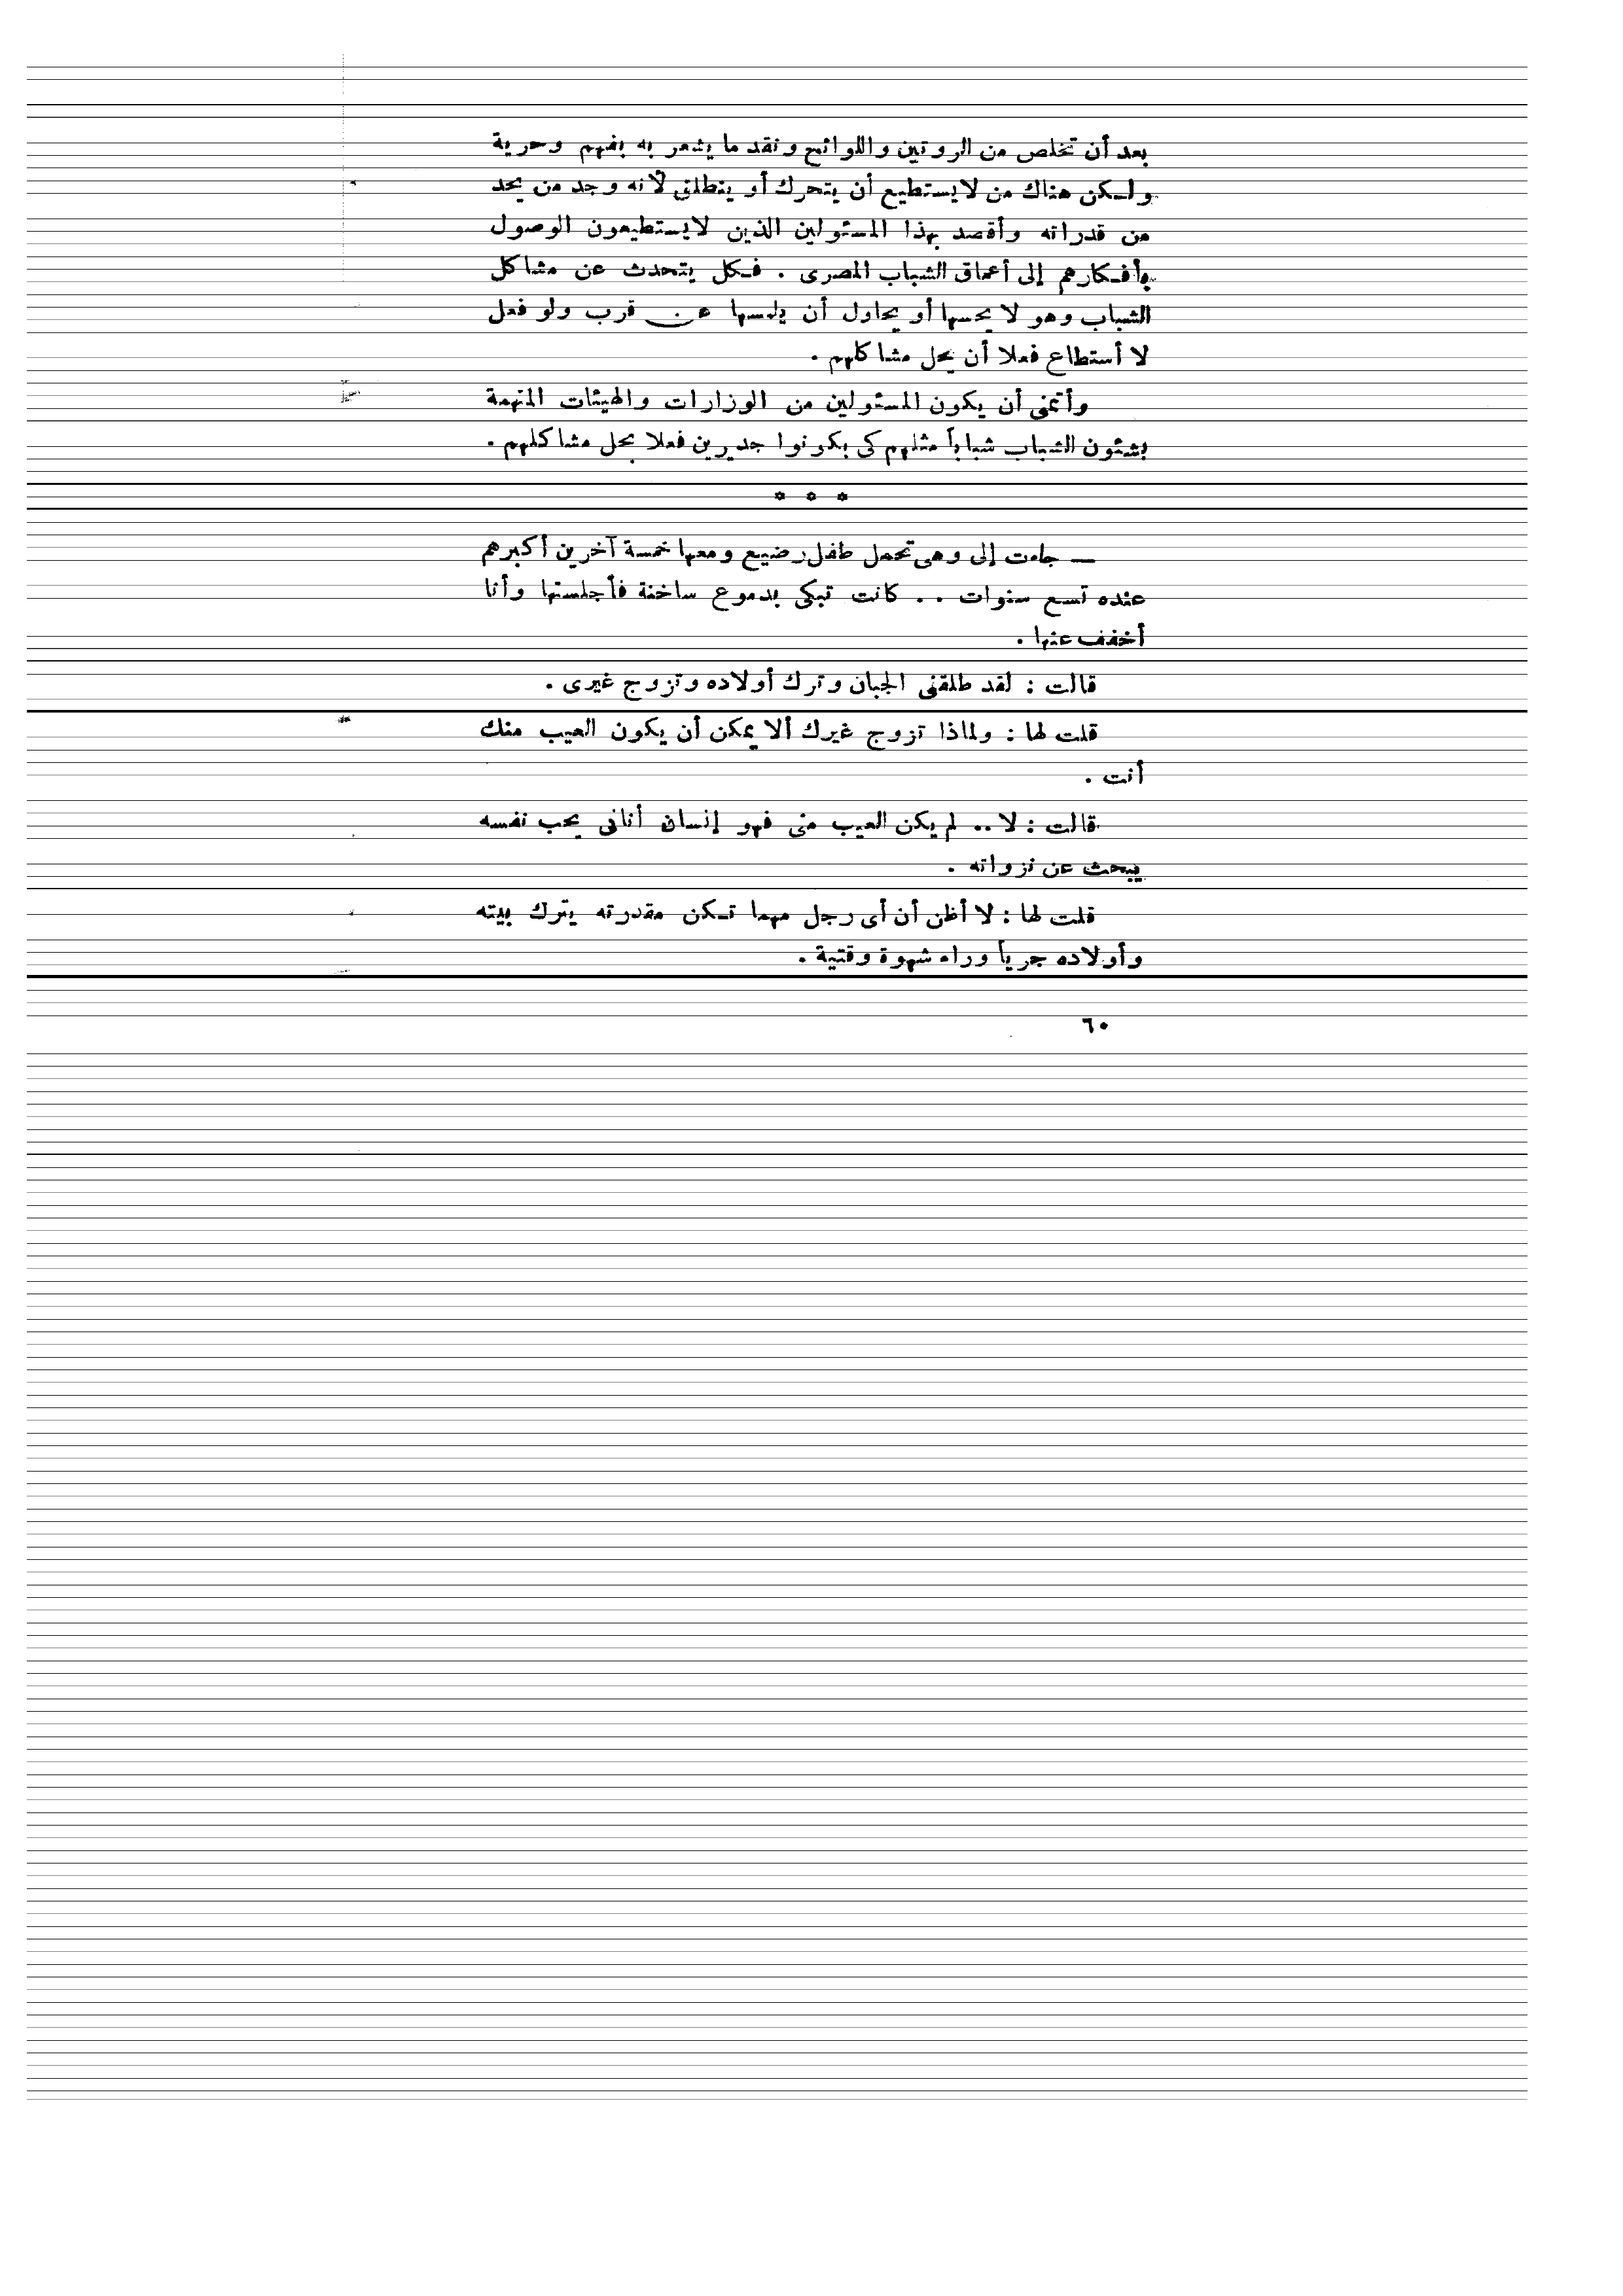 بعد أن تخلص من الروتين واللوائح ونقد ما يشعر به بفهم وحرية
ولكن هناك من لا يستطيع أن يتحرك أو ينطلق لأنه وجد من يحد
من قدراته وأقصد بهذا المسئولين الذين لا يستطيعون الوصول
بأفكارهم إلى أعماق الشباب المصرى . فكل يتحدث عن مشاكل
الشباب وهو لا يحسها أو يحاول أن يلمسها عن قرب ولو فعل
لا أستطاع فعلا أن يحل مشاكلهم .
وأتمنى أن يكون المسئولين من الوزارات والهيئات المتهمة
بشئون الشباب شباباً مثلهم كى يكونوا جديرين فعلا بحل مشاكلهم .
* * *
— جاءت إلى وهى تحمل طفل رضيع ومعها خمسة آخرين أكبرهم
عنده تسع سنوات . . كانت تبكى بدموع ساخنة فأجلستها وأنا
أخفف عنها .
قالت : لقد طلقنى الجبان وترك أولاده وتزوج غيرى .
قلت لها : ولماذا تزوج غيرك ألا يمكن أن يكون العيب منك
أنت .
قالت : لا .. لم يكن العيب منى فهو إنسان أنانى يحب نفسه
يبحث عن نزواته .
قلت لها : لا أظن أن أى رجل مهما تكن مقدرته يترك بيته
وأولاده جرياً وراء شهوة وقتية .
٦٠